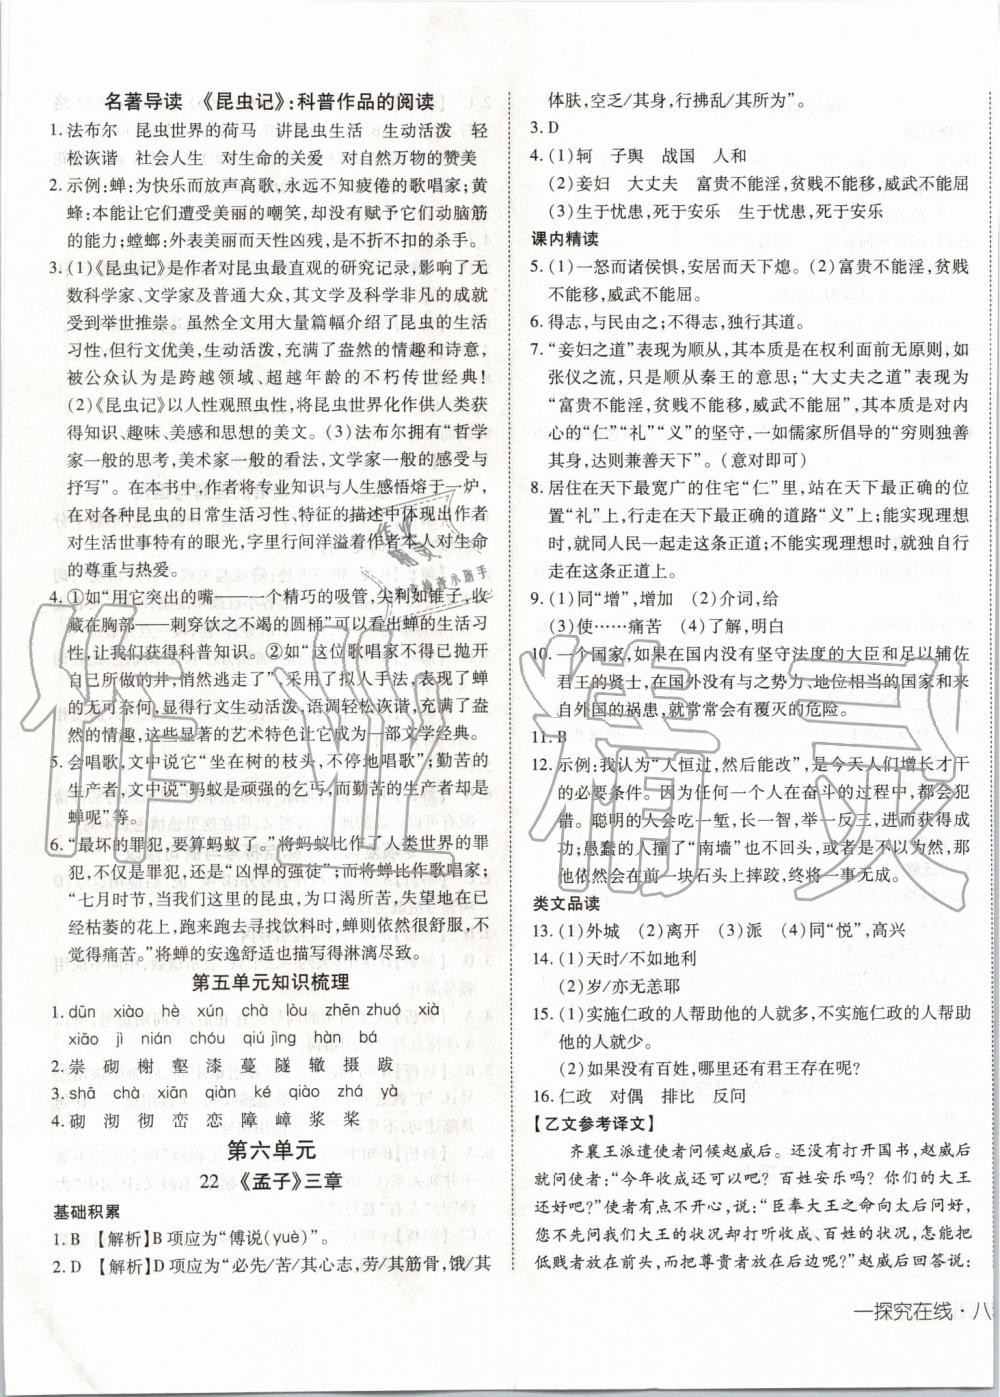 名著导读 《昆虫记》:科普作品的阅读
1. 法布尔 昆虫世界的荷马 讲昆虫生活 生动活泼 轻
松诙谐 社会人生 对生命的关爱 对自然万物的赞美
2. 示例:蝉:为快乐而放声高歌,不知疲倦的歌唱家;黄
蜂:本能让它们遭受美丽的嘲笑,却没有赋予它们动脑筋
的能力;螳螂:外表美丽而天性凶残,是不折不扣的杀手。
3. (1)《昆虫记》是作者对昆虫最直观的研究记录,影响了无
数科学家、文学家及普通大众,其文学及科学非凡的成就
受到举世推崇。虽然全文用大量篇幅介绍了昆虫的生活
习性,但行文优美,生动活泼,充满了盎然的情趣和诗意,
被公众认为是跨越领域、超越年龄的不朽传世经典!
(2)《昆虫记》以人性观照虫性,将昆虫世界化作供人类获
得知识、趣味、美感和思想的美文。(3)法布尔拥有“哲学
家一般的思考,美术家一般的看法,文学家一般的感受与
抒写”。在本书中,作者将专业知识与人生感悟熔于一炉,
在对各种昆虫的日常生活习性、特征的描述中体现出作者
对生活世事特有的眼光,字里行间洋溢着作者本人对生命
的尊重与热爱。
4. ①如“用它突出的嘴——一个精巧的吸管,尖利如锥子,收
藏在胸部——刺穿饮之不竭的圆桶”可以看出蝉的生活习
性,让我们获得科普知识。②如“这位歌唱家不得已抛开
自己所做的井,再到别处去了”,采用了拟人手法,表现了蝉
的无可奈何,显得行文生动活泼,语调轻松诙谐,充满了盎
然的情趣,这些显著的艺术特色让它成为一部文学经典。
5. 会唱歌,文中说它“坐在树的枝头,不停地唱着”;勤苦的
生产者,文中说“蚂蚁是顽强的乞丐,而勤苦的生产者却是
蝉呢”等。
6. “最坏的罪犯,要算蚂蚁了。”将蚂蚁比作人类世界的罪
犯,不仅是罪犯,还是“凶悍的强徒”;而将蝉比作歌唱家;
“七月时节,当我们这里的昆虫,为口渴所苦,失望地在已
经枯萎的花上,跑来跑去寻找饮料时,蝉则依然很舒服,不
觉得痛苦。”将蝉的安逸舒适也描写得淋漓尽致。
第五单元知识梳理
1. dūn xiào hè xún chà lòu zhēn zhuó xià
xiāo jì nián chóu qiú jìng hàn bá
2. 崇 砌 榭 壑 漆 蔓 隧 辙 摄 跋
3. shā chà xiān qiàn ké qiào zhá yà
4. 砌 沏 彻 峦 恋 障 嶂 浆 桨
第六单元
22 《孟子》三章
基础积累
1. B 【解析】B 项应为“傅说(yuè)”。
2. D 【解析】D 项应为“必先/苦/其心志,劳/其筋骨,饿/其
体肤,空乏/其身,行拂乱/其所为”。
3. D
4. (1)轲 子舆 战国 人和
(2)妾妇 大丈夫 富贵不能淫,贫贱不能移,威武不能屈
(3)生于忧患,死于安乐 生于忧患,死于安乐
课内精读
5. (1)一怒而诸侯惧,安居而天下熄。(2)富贵不能淫,贫贱
不能移,威武不能屈。
6. 得志,与民由之;不得志,独行其道。
7. “妾妇之道”表现为顺从,其本质是在权利面前无原则,如
张仪之流,只是顺从秦王的意思;“大丈夫之道”表现为
“富贵不能淫,贫贱不能移,威武不能屈”,其本质是对内
心的“仁”“礼”“义”的坚守,一如儒家所倡导的“穷则独善
其身,达则兼善天下”。(意对即可)
8. 居住在天下最宽广的住宅“仁”里,站在天下最正确的位
置“礼”上,行走在天下最正确的道路“义”上;能实现理想
时,就同人民一起走这条正道;不能实现理想时,就独自行
走在这条正道上。
9. (1)同“增”,增加 (2)介词,给
(3)使……痛苦 (4)了解,明白
10. 一个国家,如果在国内没有坚守法度的大臣和足以辅佐
君王的贤士,在国外没有与之势力、地位相当的国家和来
自外国的祸患,就常常会有覆灭的危险。
11. B
12. 示例:我认为“人恒过,然后能改”,是今天人们增长才干
的必要条件。因为一个人在奋斗的过程中,都会犯
错。聪明的人常常从错误中吸取教训,举一反三,进而获得
成功;愚蠢的人撞了“南墙”也不回头,或者自暴自弃,
他依然会在前一块石头上摔跤,终将一事无成。
类文品读
13. (1)外城 (2)离开 (3)派 (4)同“悦”,高兴
14. (1)天时/不如地利
(2)岁/亦无恙耶
15. (1)实施仁政的人帮助他的人就多,不实施仁政的人帮助
他的人就少。
(2)如果没有百姓,哪里还有君王存在呢?
16. 仁政 对偶 排比 反问
【乙文参考译文】
齐襄王派遣使者问候赵威后。还没有打开国书,赵威后
就问使者:“今年收成还可以吧?百姓安乐吗?你们的大王
还好吧?”使者有点不开心,说:“臣奉大王之命向太后问好,
您不先问我们大王的状况却打听收成、百姓的状况,怎能把
低贱者放在前头,而把尊贵者放在后边呢?”赵威后回答说:
一探究在线·八
作业精灵